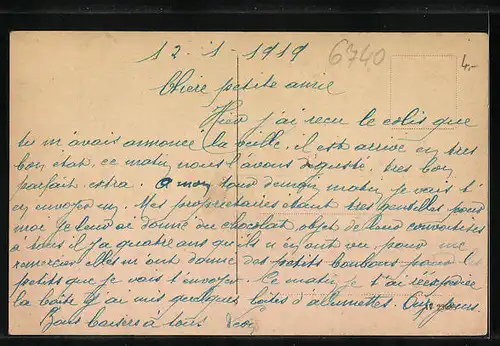 12-1-1919
6740
4.-
Chère petite amie
Hier j'ai recu le colis que
tu m'avais annoncé la veille, il est arrivé en tres
bon etat, ce matin nous l'avons dégusté, tres bon
parfait, extra. a mon tour demain matin je vais t'
en envoyer un. Mes proprietaires etant tres gentilles pour
moi je leur ai donné du chocolat, objet de leur convoitises
a tous il y a quatre ans qu'ils n en ont vu, pour me
remercier elles m'ont donné des petits bonbons pour les
petits que je vais t'envoyer. Ce matin je t'ai réexpédié
la boite et y ai mis quelques boites d'alumettes.
Bons baisers à tous